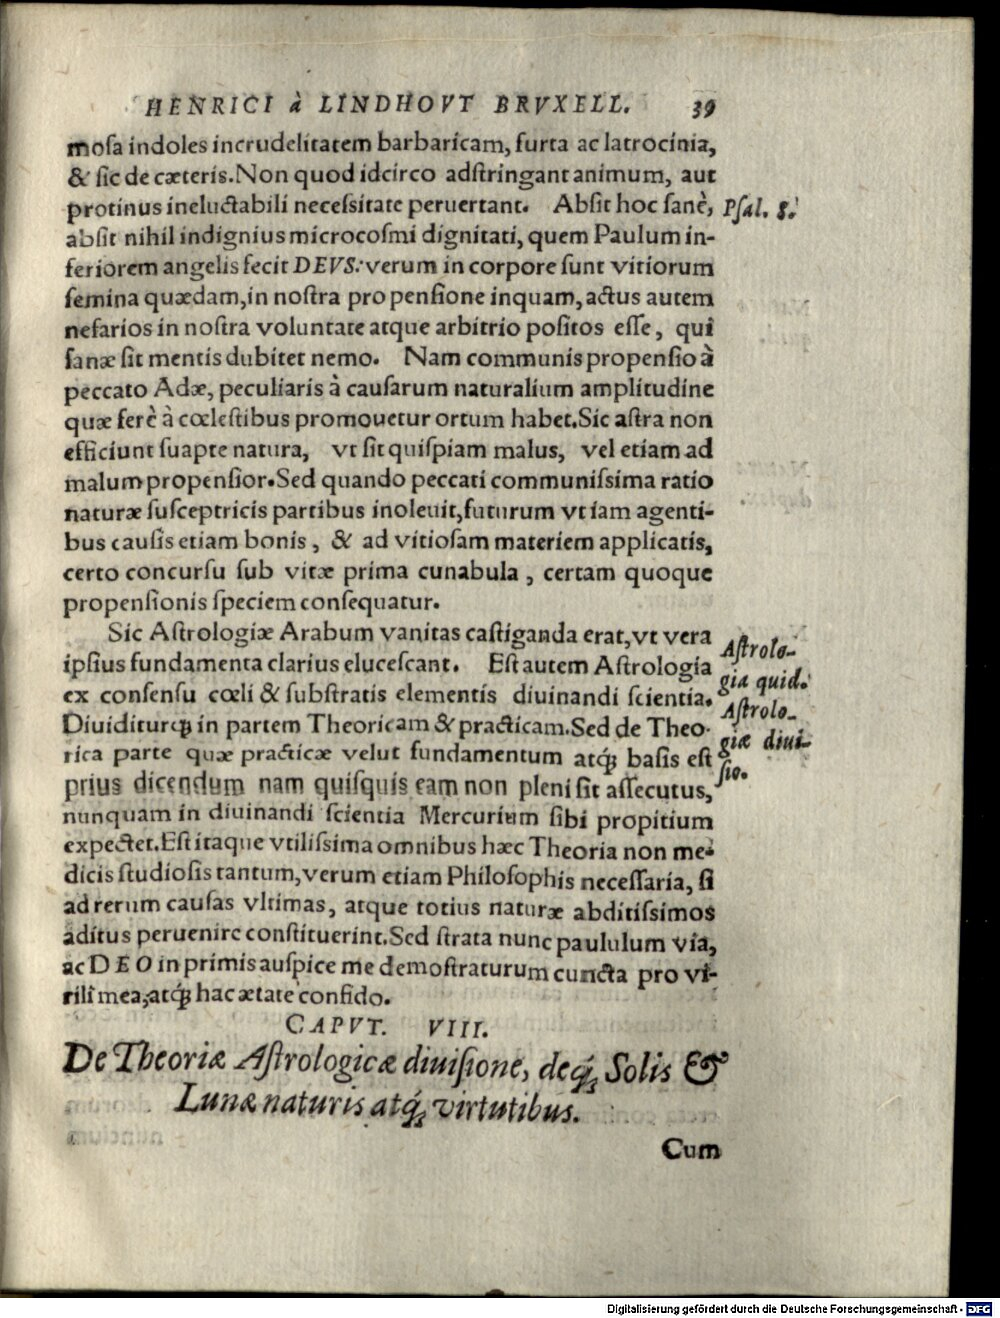 HENRICI à LINDHOVT BRVXELL. 39
moſa indoles in crudelitatem barbaricam, furta ac latrocinia,
& ſic de cæteris. Non quod idcirco adſtringant animum, aut
protinus ineluctabili neceſsitate peruertant. Abſit hoc ſanè,
Pſal. 8.
abſit nihil indignius microcoſmi dignitati, quem Paulum in-
feriorem angelis fecit DEVS: verum in corpore ſunt vitiorum
ſemina quædam, in noſtra propenſione inquam, actus autem
nefarios in noſtra voluntate atque arbitrio poſitos eſſe, qui
ſanæ ſit mentis dubitet nemo. Nam communis propenſio à
peccato Adæ, peculiaris à cauſarum naturalium amplitudine
quæ ferè à cœleſtibus promouetur ortum habet. Sic aſtra non
efficiunt ſuapte natura, vt ſit quiſpiam malus, vel etiam ad
malum propenſior. Sed quando peccati communiſsima ratio
naturæ ſuſceptricis partibus inoleuit, futurum vt iam agenti-
bus cauſis etiam bonis, & ad vitioſam materiem applicatis,
certo concurſu ſub vitæ prima cunabula, certam quoque
propenſionis ſpeciem conſequatur.
Sic Aſtrologiæ Arabum vanitas caſtiganda erat, vt vera
ipſius fundamenta clarius eluceſcant. Eſt autem Aſtrologia
ex conſenſu cœli & ſubſtratis elementis diuinandi ſcientia.
Diuiditurq́ in partem Theoricam & practicam. Sed de Theo-
rica parte quæ practicæ velut fundamentum atq́ baſis eſt
prius dicendum nam quiſquis eam non pleni ſit aſſecutus,
Aſtrolo-
gia quid.
Aſtrolo-
giæ diui-
ſio.
nunquam in diuinandi ſcientia Mercurium ſibi propitium
expectet. Eſt itaque vtiliſsima omnibus hæc Theoria non me-
dicis ſtudioſis tantum, verum etiam Philoſophis neceſſaria, ſi
ad rerum cauſas vltimas, atque totius naturæ abditiſsimos
aditus peruenire conſtituerint. Sed ſtrata nunc paululum via,
ac DEO in primis auſpice me demoſtraturum cuncta pro vi-
rili mea, atq́ hac ætate confido.
CAPVT. VIII.
De Theoriæ Aſtrologicæ diuiſione, deq́ Solis &
Lunæ naturis atq́ virtutibus.
Cum
Digitalisierung gefördert durch die Deutsche Forschungsgemeinschaft - DFG